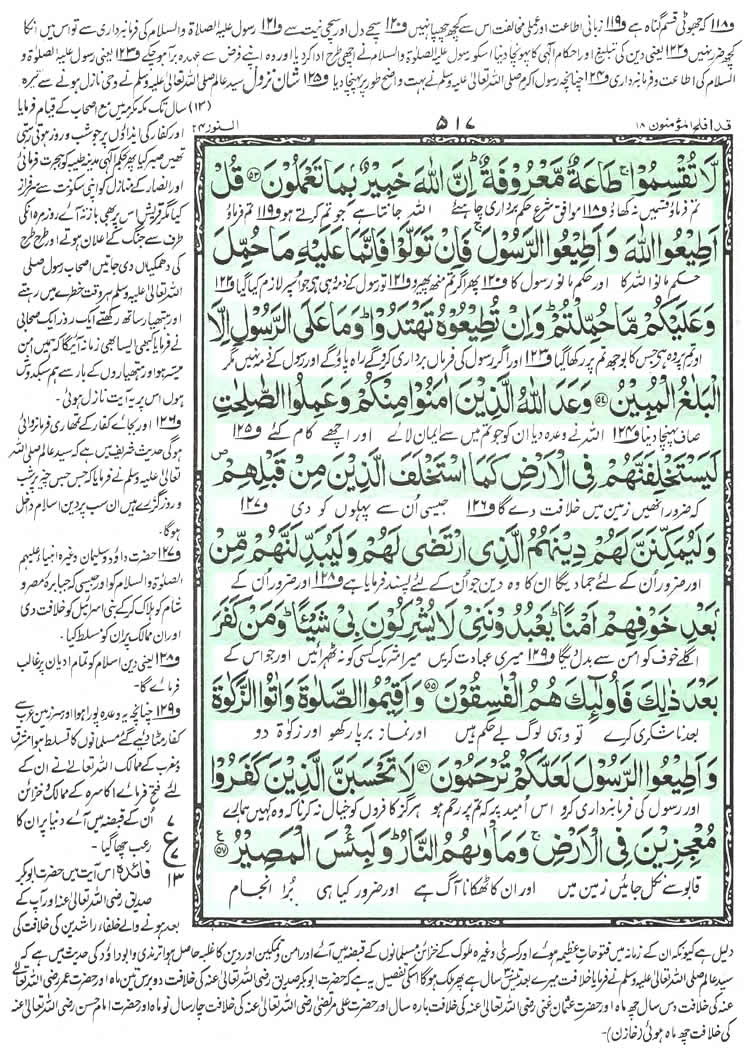 ف۱۱۸ کہ جھوٹی قسم گناہ ہے ف۱۱۹ زبانی اطاعت اور عملی مخالفت اس سے کچھ چھپا نہیں ف۱۲۰ سچے دل اور سچی نیت سے ف۱۲۱ رسول علیہ الصلاۃ والسلام کی فرمانبرداری سے تو اس میں انکا
کچھ ضرر نہیں ف۱۲۲ یعنی دین کی تبلیغ اور احکام الٰہی کا پہونچا دینا اسکو رسول علیہ الصلوٰۃ والسلام نے اچھی طرح ادا کر دیا اور وہ اپنے فرض سے عہدہ برآ ہو چکے ف۱۲۳ یعنی رسول علیہ الصلوٰۃ و
السلام کی اطاعت و فرمانبرداری ف۱۲۴ چنانچہ رسول اکرم صلی اللہ تعالیٰ علیہ وسلم نے بہت واضح طور پر پہنچا دیا ف۱۲۵ شان نزول سید عالم صلی اللہ تعالیٰ علیہ وسلم نے وحی نازل ہونے سے تیرہ
(۱۳) سال تک مکہ مکرمہ میں مع اصحاب کے قیام فرمایا
اور کفار کی ایذاؤں پر جو شب و روز ہوتی رہتی
تھیں صبر کیا پھر بحکم الٰہی مدینہ طیبہ کو ہجرت فرمائی
اور انصار کے منازل کو اپنی سکونت سے سرفراز
کیا مگر قریش اس پر بھی باز نہ آئے روز مرہ انکی
طرف سے جنگ کے اعلان ہوتے اور طرح طرح
کی دھمکیاں دی جاتیں اصحاب رسول صلی
اللہ تعالیٰ علیہ وسلم ہر وقت خطرے میں رہتے
اور ہتھیار ساتھ رکھتے ایک روز ایک صحابی
نے فرمایا کبھی ایسا بھی زمانہ آئیگا کہ ہمیں امن
میسر ہو اور ہتھیاروں کے بار سے ہم سبکدوش
ہوں اس پر یہ آیت نازل ہوئی۔
ف۱۲۶ اور بجائے کفار کے تمھاری فرمانروائی
ہوگی حدیث شریف میں ہے کہ سید عالم صلی اللہ
تعالیٰ علیہ وسلم نے فرمایا کہ جس جس چیز پر شب
و روز گزرے ہیں ان سب پر دین اسلام داخل
ہوگا۔
ف۱۲۷ حضرت داؤد و سلیمان وغیرہ انبیاء علیہم
الصلوٰۃ والسلام کو اور جیسی کہ جبابرہ مصر و
شام کو ہلاک کر کے بنی اسرائیل کو خلافت دی
اور ان ممالک پر ان کو مسلط کیا۔
ف۱۲۸ یعنی دین اسلام کو تمام ادیان پر غالب
فرمائے گا۔
ف۱۲۹ چنانچہ یہ وعدہ پورا ہوا اور سرزمین عرب سے
کفار مٹا دیئے گئے مسلمانوں کا تسلط ہوا مشرق
و مغرب کے ممالک اللہ تعالیٰ نے ان کے
لئے فتح فرمائے اکاسرہ کے ممالک و خزائن
اُن کے قبضہ میں آئے دنیا پر ان کا
رعب چھا گیا۔
فائدہ اس آیت میں حضرت ابوبکر
صدیق رضی اللہ تعالیٰ عنہ اور آپ کے
بعد ہونے والے خلفاء راشدین کی خلافت کی
۷ ع ۷ ۱۳
قد افلح المؤمنون ۱۸
۵۱۷
النور ۲۴
لَّا تُقْسِمُوْا ۚ طَاعَةٌ مَّعْرُوْفَةٌ ؕ اِنَّ اللّٰهَ خَبِیْرٌۢ بِمَا تَعْمَلُوْنَ ﴿۵۳﴾ قُلْ
تم فرماؤ قسمیں نہ کھاؤ ف۱۱۸ موافق شرع حکم برداری چاہیئے اللہ جانتا ہے جو تم کرتے ہو ف۱۱۹ تم فرماؤ
اَطِیْعُوا اللّٰهَ وَ اَطِیْعُوا الرَّسُوْلَ ۚ فَاِنْ تَوَلَّوْا فَاِنَّمَا عَلَیْهِ مَا حُمِّلَ
حکم مانو اللہ کا اور حکم مانو رسول کا ف۱۲۰ پھر اگر تم منھ پھیرو ف۱۲۱ تو رسول کے ذمہ وہی ہے جو اس پر لازم کیا گیا ف۱۲۲
وَ عَلَیْكُمْ مَّا حُمِّلْتُمْ ؕ وَ اِنْ تُطِیْعُوْهُ تَهْتَدُوْا ؕ وَ مَا عَلَی الرَّسُوْلِ اِلَّا
اور تم پر وہ ہے جس کا بوجھ تم پر رکھا گیا ف۱۲۳ اور اگر رسول کی فرماں برداری کرو گے راہ پاؤ گے اور رسول کے ذمہ نہیں مگر
الْبَلٰغُ الْمُبِیْنُ ﴿۵۴﴾ وَعَدَ اللّٰهُ الَّذِیْنَ اٰمَنُوْا مِنْكُمْ وَ عَمِلُوا الصّٰلِحٰتِ
صاف پہنچا دینا ف۱۲۴ اللہ نے وعدہ دیا ان کو جو تم میں سے ایمان لائے اور اچھے کام کئے ف۱۲۵
لَیَسْتَخْلِفَنَّهُمْ فِی الْاَرْضِ كَمَا اسْتَخْلَفَ الَّذِیْنَ مِنْ قَبْلِهِمْ ۪
کہ ضرور انھیں زمین میں خلافت دے گا ف۱۲۶ جیسی اُن سے پہلوں کو دی ف۱۲۷
وَ لَیُمَكِّنَنَّ لَهُمْ دِیْنَهُمُ الَّذِی ارْتَضٰی لَهُمْ وَ لَیُبَدِّلَنَّهُمْ مِّنْۢ
اور ضرور اُن کے لئے جما دیگا ان کا وہ دین جو اُن کے لئے پسند فرمایا ہے ف۱۲۸ اور ضرور اُن کے
بَعْدِ خَوْفِهِمْ اَمْنًا ؕ یَعْبُدُوْنَنِیْ لَا یُشْرِكُوْنَ بِیْ شَیْـًٔا ؕ وَ مَنْ كَفَرَ
اگلے خوف کو امن سے بدل دیگا ف۱۲۹ میری عبادت کریں میرا شریک کسی کو نہ ٹھہرائیں اور جو اس کے
بَعْدَ ذٰلِكَ فَاُولٰٓىِٕكَ هُمُ الْفٰسِقُوْنَ ﴿۵۵﴾ وَ اَقِیْمُوا الصَّلٰوةَ وَ اٰتُوا الزَّكٰوةَ
بعد ناشکری کرے تو وہی لوگ بے حکم ہیں اور نماز برپا رکھو اور زکوٰۃ دو
وَ اَطِیْعُوا الرَّسُوْلَ لَعَلَّكُمْ تُرْحَمُوْنَ ﴿۵۶﴾ لَا تَحْسَبَنَّ الَّذِیْنَ كَفَرُوْا
اور رسول کی فرمانبرداری کرو اس اُمید پر کہ تم پر رحم ہو ہرگز کافروں کو خیال نہ کرنا کہ وہ کہیں ہمارے
مُعْجِزِیْنَ فِی الْاَرْضِ ۚ وَ مَاْوٰىهُمُ النَّارُ ؕ وَ لَبِئْسَ الْمَصِیْرُ ﴿۵۷﴾
قابو سے نکل جائیں زمین میں اور ان کا ٹھکانا آگ ہے اور ضرور کیا ہی بُرا انجام
دلیل ہے کیونکہ ان کے زمانہ میں فتوحات عظیمہ ہوئے اور کسریٰ وغیرہ ملوک کے خزائن مسلمانوں کے قبضہ میں آئے اور امن و تمکین اور دین کا غلبہ حاصل ہوا ترمذی و ابوداؤد کی حدیث میں ہے کہ
سید عالم صلی اللہ تعالیٰ علیہ وسلم نے فرمایا خلافت میرے بعد تیس سال ہے پھر ملک ہوگا اسکی تفصیل یہ ہے کہ حضرت ابوبکر صدیق رضی اللہ تعالیٰ عنہ کی خلافت دو برس تین ماہ اور حضرت عمر رضی اللہ تعالیٰ
عنہ کی خلافت دس سال چھ ماہ اور حضرت عثمان غنی رضی اللہ تعالیٰ عنہ کی خلافت بارہ سال اور حضرت علی مرتضیٰ رضی اللہ تعالیٰ عنہ کی خلافت چار سال نو ماہ اور حضرت امام حسن رضی اللہ تعالیٰ عنہ
کی خلافت چھ ماہ ہوئی (خازن)۔